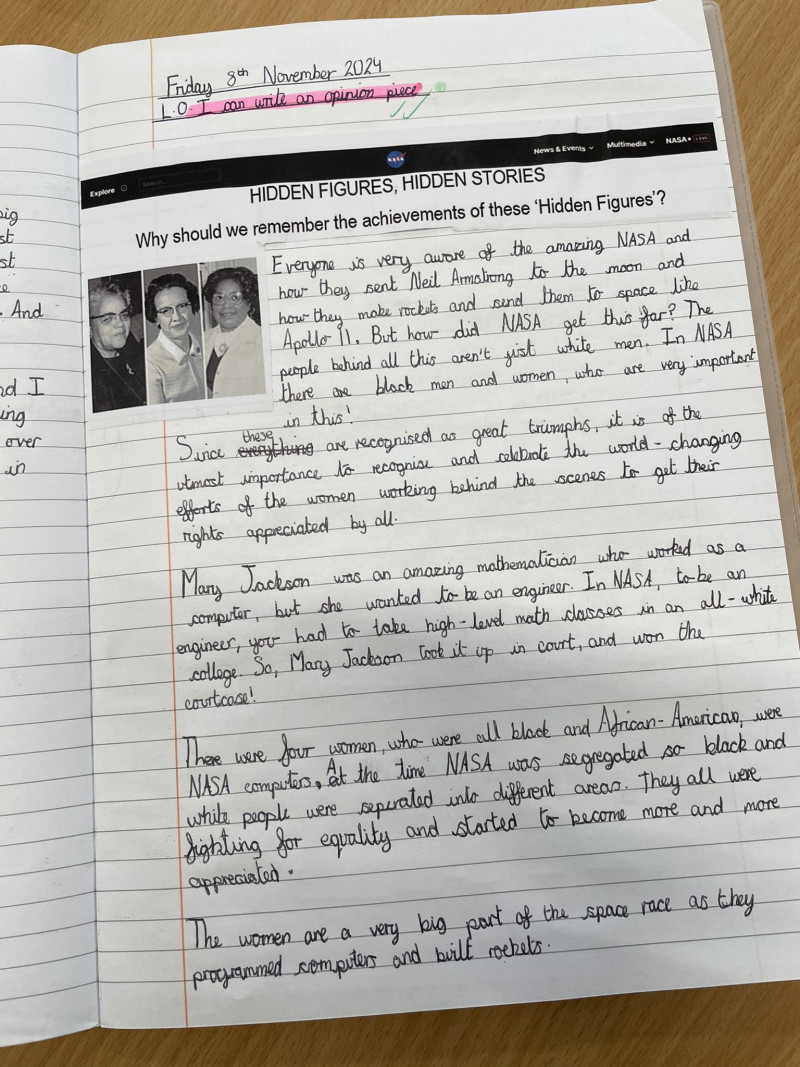 Friday 8th November 2024
L.O. I can write an opinion piece
Explore
Search...
NASA
News & Events
Multimedia
NASA+
LIVE
HIDDEN FIGURES, HIDDEN STORIES
Why should we remember the achievements of these 'Hidden Figures'?
Everyone is very aware of the amazing NASA and
how they sent Neil Armstrong to the moon and
how they make rockets and send them to space like
Apollo 11. But how did NASA get this far? The
people behind all this aren't jist white men. In NASA
there are black men and women, who are very important
in this!
Since everything these are recognised as great triumphs, it is of the
utmost importance to recognise and celebrate the world-changing
efforts of the women working behind the scenes to get their
rights appreciated by all.
Mary Jackson was an amazing mathematician who worked as a
computer, but she wanted to be an engineer. In NASA, to be an
engineer, you had to take high-level math classes in an all-white
college. So, Mary Jackson took it up in court, and won the
courtcase!
There were four women, who were all black and African-American, were
NASA computers. At the time NASA was segregated so black and
white people were seperated into different areas. They all were
fighting for equality and started to become more and more
appreciated.
The women are a very big part of the space race as they
programmed computers and built rockets.
big
st
st
e
. And
nd I
ing
over
in